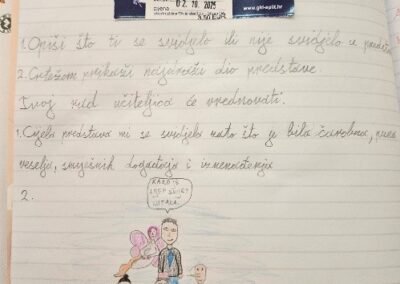 cijena
02. 10. 2025
www.gkl-split.hr
1. Opiši što ti se svidjelo ili nije svidjelo u
2. Crtežom prikaži najdraži dio predstave.
Tvoj rad učiteljica će vrednovati.
1. Cijela predstava mi se svidjela zato što je bila čarobna, puna
veselja, smiješnih događaja i iznenađenja
2.
KAKO JE
LIJEP SVIJET